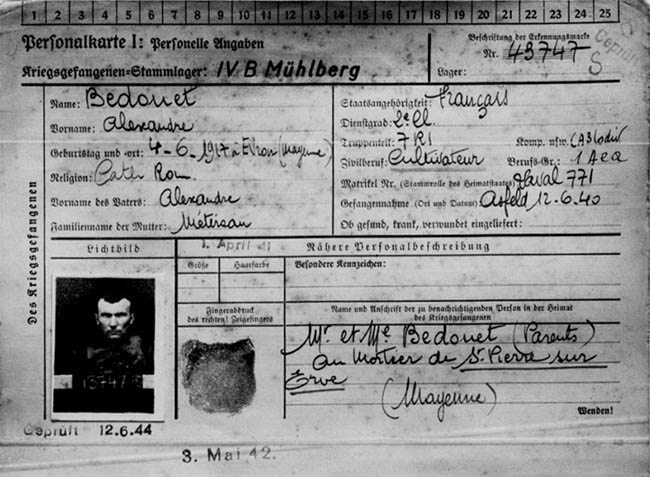 1 2 3 4 5 6 7 8 9 10 11 12 13 14 15 16 17 18 19 20 21 22 23 24 25
Personalkarte I: Personelle Angaben
Kriegsgefangenen-Stammlager: IV B Mühlberg
Beschriftung der Erkennungsmarke
Nr. 43747 S
Geprüft
Lager:
Des Kriegsgefangenen
Name: Bedouet
Vorname: Alexandre
Geburtstag und -ort: 4-6-1917 à Evron (Mayenne)
Religion: Cath Rom.
Vorname des Vaters: Alexandre
Familienname der Mutter:
Staatsangehörigkeit: Français
Dienstgrad: 2e Cl.
Truppenteil: 7 RI Komp. usw.
Zivilberuf: Cultivateur Berufs-Gr.: 1 A
Matrikel Nr. (Stammrolle des Heimatstaates) Laval 771
Gefangennahme (Ort und Datum) Asfeld 12.6.40
Ob gesund, krank, verwundet eingeliefert:
Lichtbild
1. April 41
Nähere Personalbeschreibung
Größe
Haarfarbe
Besondere Kennzeichen:
Fingerabdruck
des rechten! Zeigefingers
Name und Anschrift der zu benachrichtigenden Person in der Heimat
des Kriegsgefangenen
Mr et Me Bedouet (Parents)
au Mortier de St Pierre sur
Erve
(Mayenne)
Wenden!
Geprüft 12.6.44
3. Mai 42.